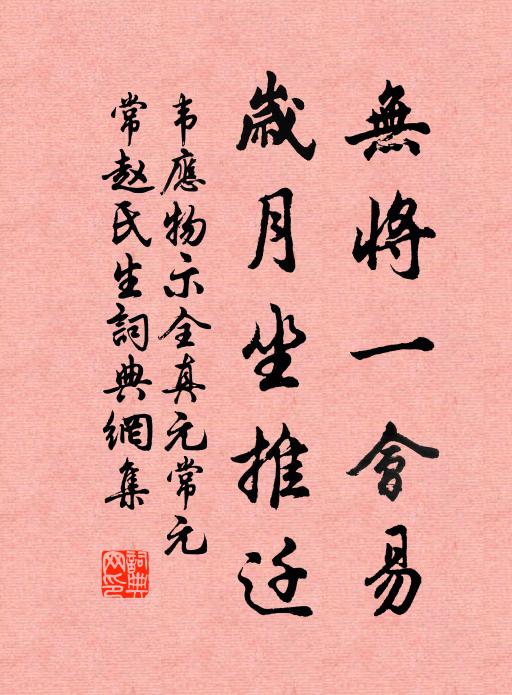 無將一會易
歲月坐推迁
韦應物示全真元常元
常赵氏生詞典網集
詞典
网印